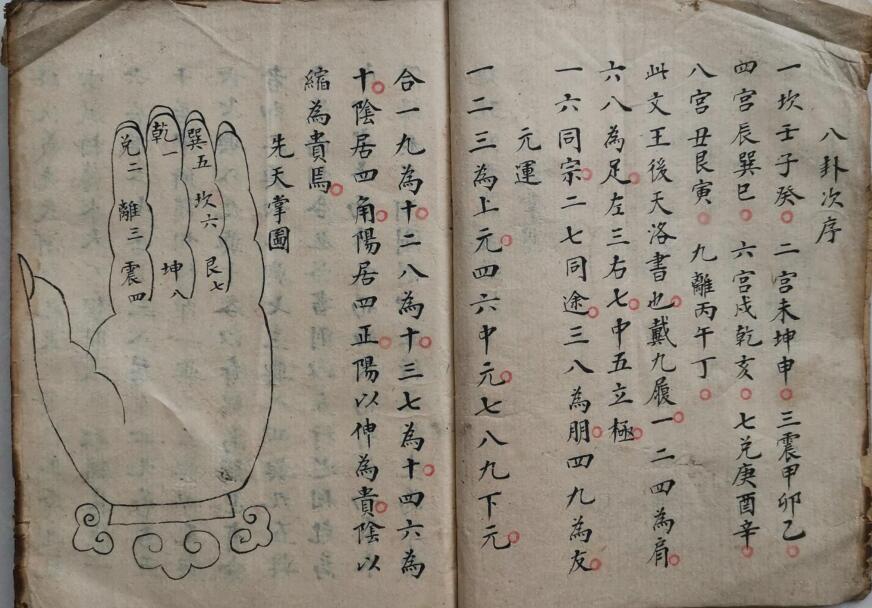 八卦次序
一坎壬子癸。二宮未坤申。三震甲卯乙。
四宮辰巽巳。六宮戌乾亥。七兑庚酉辛。
八宮丑艮寅。九離丙午丁。
此文王後天洛書也。戴九履一。二四為肩。
六八為足。左三右七。中五立極。
一六同宗。二七同途。三八為朋。四九為友。
元運
一二三為上元。四六中元。七八九下元。
合一九為十。二八為十。三七為十。四六為
十。陰居四角。陽居四正。陽以伸為貴。陰以
縮為貴焉。
先天掌圖
乾一
兑二 離三 震四
巽五 坎六 艮七
坤八